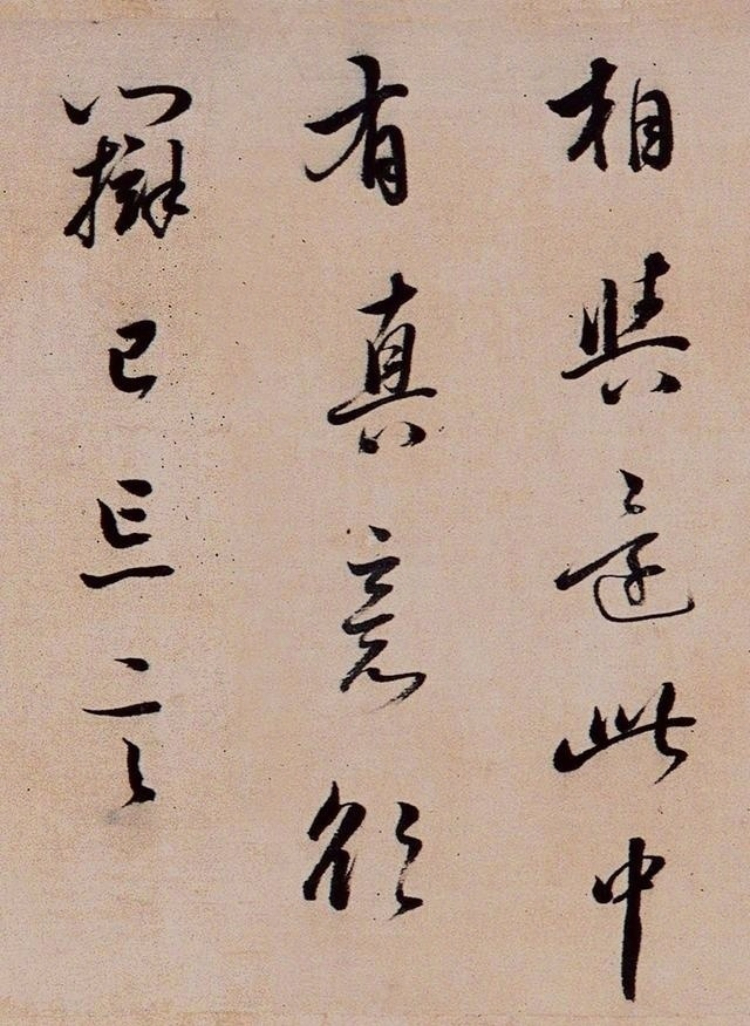 相與還此中
有真意欲
辨已忘言